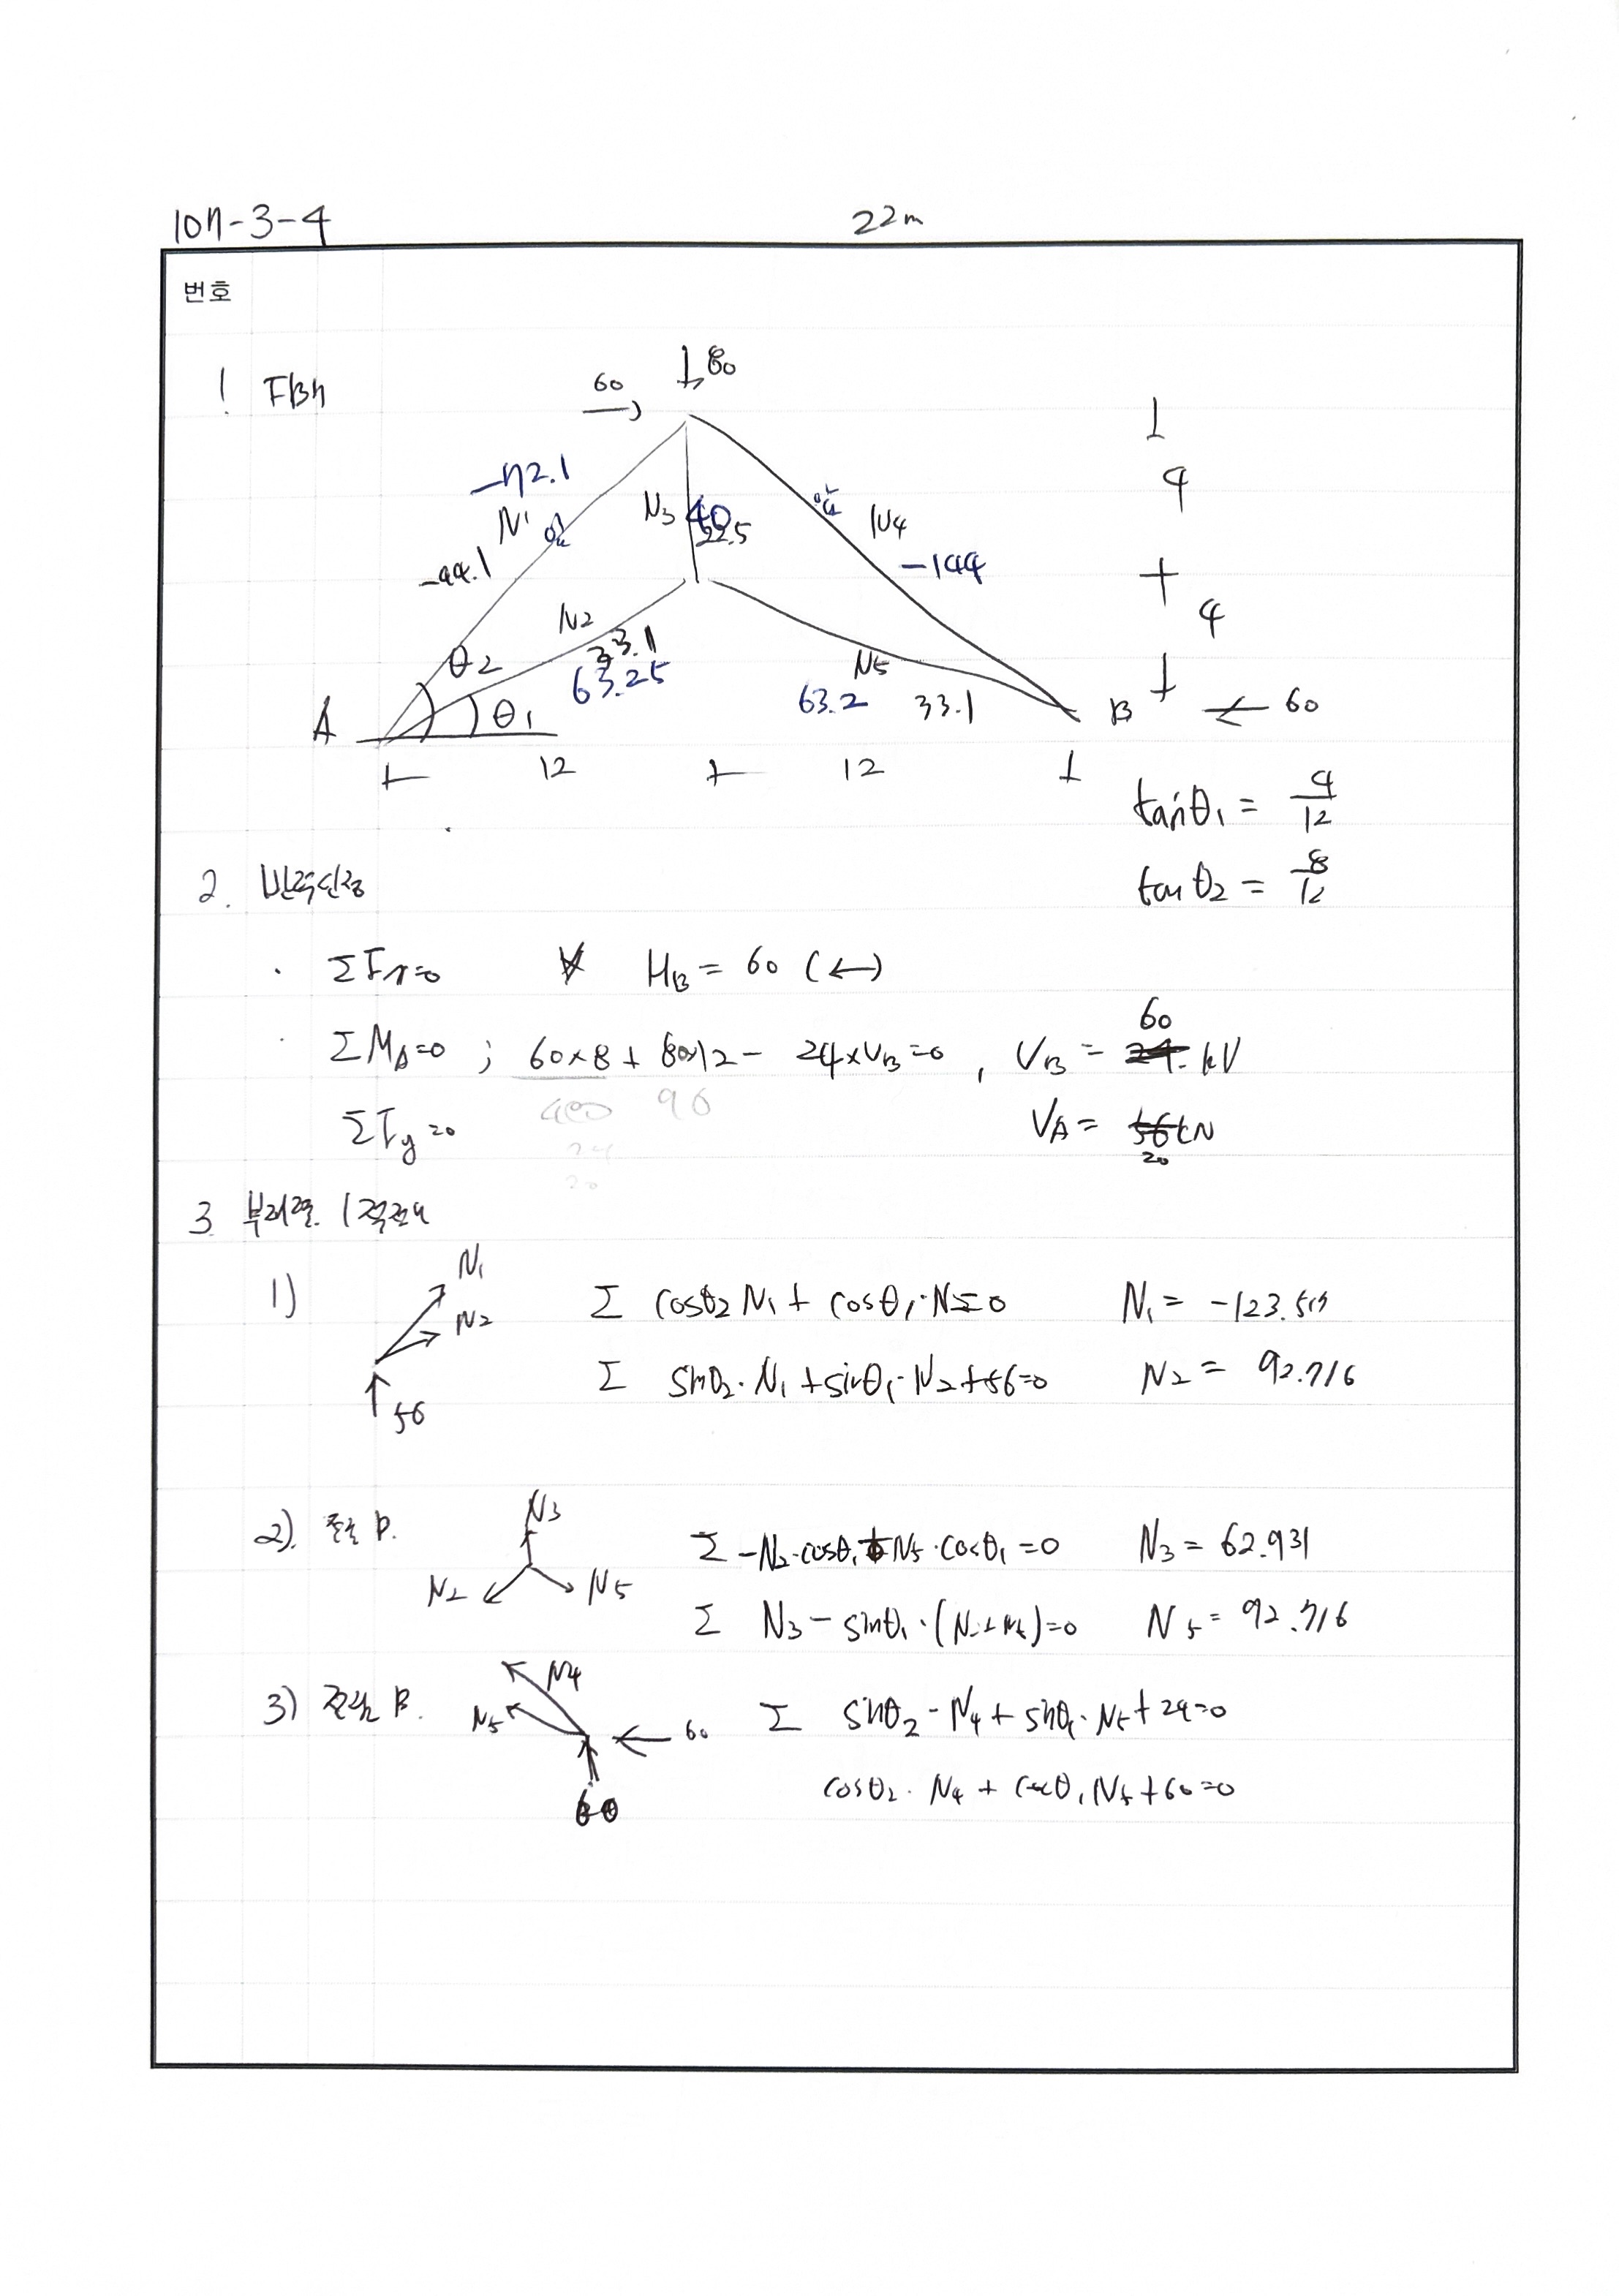 107-3-4
22m
번호
1 FBD
60
80
-72.1
N1
압
-44.1
N3
40
22.5
압
N4
-144
4
4
N2
33.1
63.25
N5
63.2 33.1
θ2
θ1
A
B
60
12 12
tanθ1 = 4/12
tanθ2 = 8/12
2. 반력산정
· ΣFx=0 HB = 60 (←)
· ΣMA=0 ; 60×8 + 80×12 - 24×VB=0 , VB = 60 kN
400 96
ΣFy=0 VA = 20 kN
24
20
3 부재력
1) N1
N2
56
Σ cosθ2 N1 + cosθ1·N2=0 N1 = -123.5
Σ sinθ2·N1 + sinθ1·N2+56=0 N2 = 92.716
2). 절점 D.
N3
N2 N5
Σ -N2·cosθ1+N5·cosθ1=0 N3 = 62.931
Σ N3 - sinθ1·(N2+N5)=0 N5 = 92.716
3) 절점 B.
N4
N5
60
60
Σ sinθ2·N4 + sinθ1·N5+24=0
cosθ2·N4 + cosθ1N5+60=0